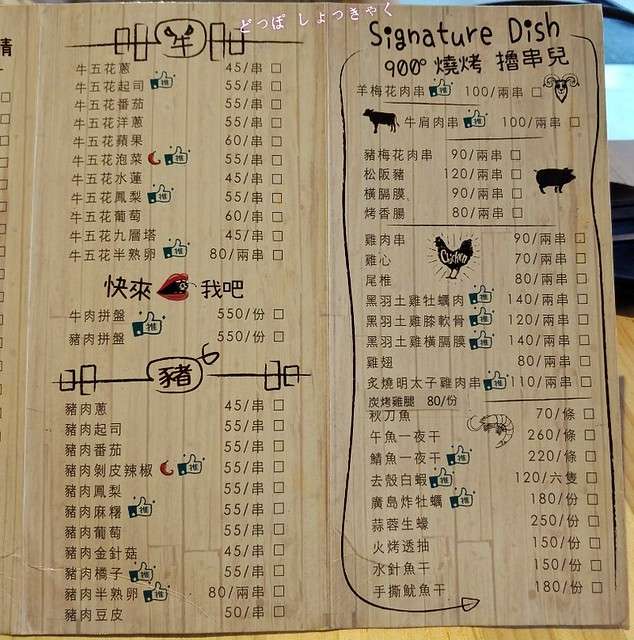 どっぽ しょっきゃく
牛
牛五花蔥 45/串
牛五花起司 推 55/串
牛五花番茄 55/串
牛五花洋蔥 55/串
牛五花蘋果 60/串
牛五花泡菜 推 55/串
牛五花水蓮 45/串
牛五花鳳梨 推 55/串
牛五花葡萄 60/串
牛五花九層塔 45/串
牛五花半熟卵 推 80/兩串
快來 我吧
牛肉拼盤 推 550/份
豬肉拼盤 550/份
豬
豬肉蔥 45/串
豬肉起司 55/串
豬肉番茄 55/串
豬肉剝皮辣椒 推 55/串
豬肉鳳梨 55/串
豬肉麻糬 推 55/串
豬肉葡萄 55/串
豬肉金針菇 45/串
豬肉橘子 推 55/串
豬肉半熟卵 推 80/兩串
豬肉豆皮 50/串
Signature Dish
900° 燒烤 擼串兒
羊梅花肉串 推 100/兩串
牛肩肉串 推 100/兩串
豬梅花肉串 90/兩串
松阪豬 120/兩串
橫膈膜 90/兩串
烤香腸 80/兩串
雞肉串 90/兩串
雞心 70/兩串
尾椎 80/兩串
Chicken
黑羽土雞牡蠣肉 推 140/兩串
黑羽土雞膝軟骨 推 120/兩串
黑羽土雞橫膈膜 推 140/兩串
雞翅 80/兩串
炙燒明太子雞肉串 推 110/兩串
炭烤雞腿 80/份
秋刀魚 70/條
午魚一夜干 260/條
鯖魚一夜干 推 220/條
去殼白蝦 推 120/六隻
廣島炸牡蠣 推 180/份
蒜蓉生蠔 250/份
火烤透抽 150/份
水針魚干 150/份
手撕魷魚干 180/份